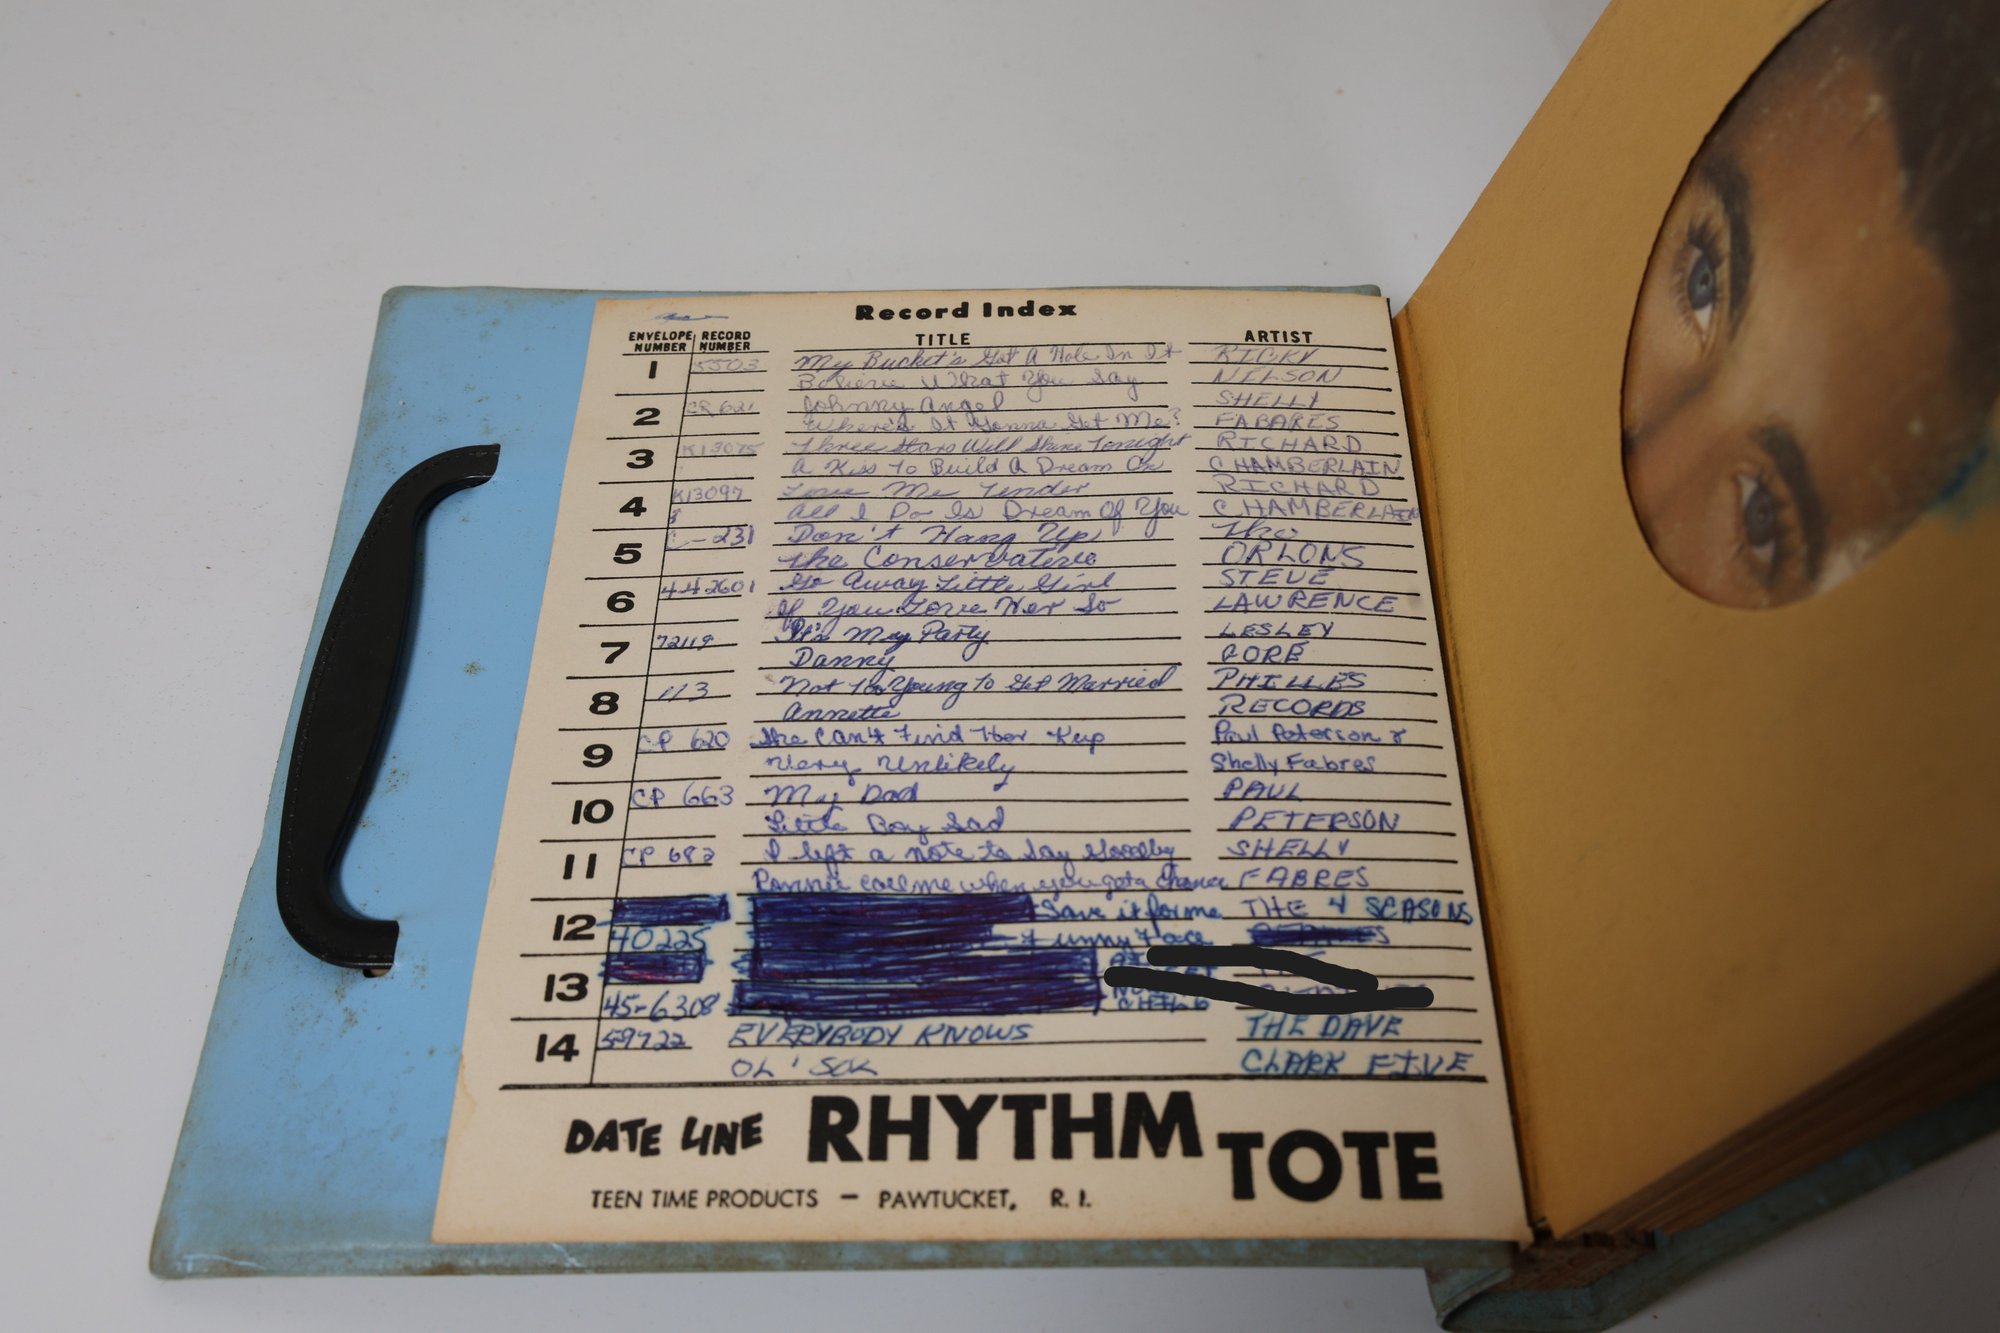 Record Index
ENVELOPE NUMBER RECORD NUMBER TITLE ARTIST
1 5503 My Bucket's Got A Hole In It RICKY
Believe What You Say NELSON
2 CP 621 Johnny Angel SHELLY
Where's It Gonna Get Me? FABARES
3 K13075 Three Stars Will Shine Tonight RICHARD
A Kiss To Build A Dream On CHAMBERLAIN
4 K13097 Love Me Tender RICHARD
All I Do Is Dream Of You CHAMBERLAIN
5 C-231 Don't Hang Up The
The Conservative ORLONS
6 4-42601 Go Away Little Girl STEVE
If You Love Her So LAWRENCE
7 72119 It's My Party LESLEY
Danny GORE
8 113 Not Too Young To Get Married PHILLES
Annette RECORDS
9 CP 620 She Can't Find Her Keys Paul Peterson &
Very Unlikely Shelly Fabres
10 CP 663 My Dad PAUL
Little Boy Sad PETERSON
11 CP 682 I left a note to say Goodby SHELLY
Ronnie call me when you get a chance FABRES
12 Save it for me THE 4 SEASONS
40225 Funny Face
13
45-6308 CHILD
14 59722 EVERYBODY KNOWS THE DAVE
OL' SOL CLARK FIVE
DATE LINE RHYTHM TOTE
TEEN TIME PRODUCTS — PAWTUCKET, R. I.